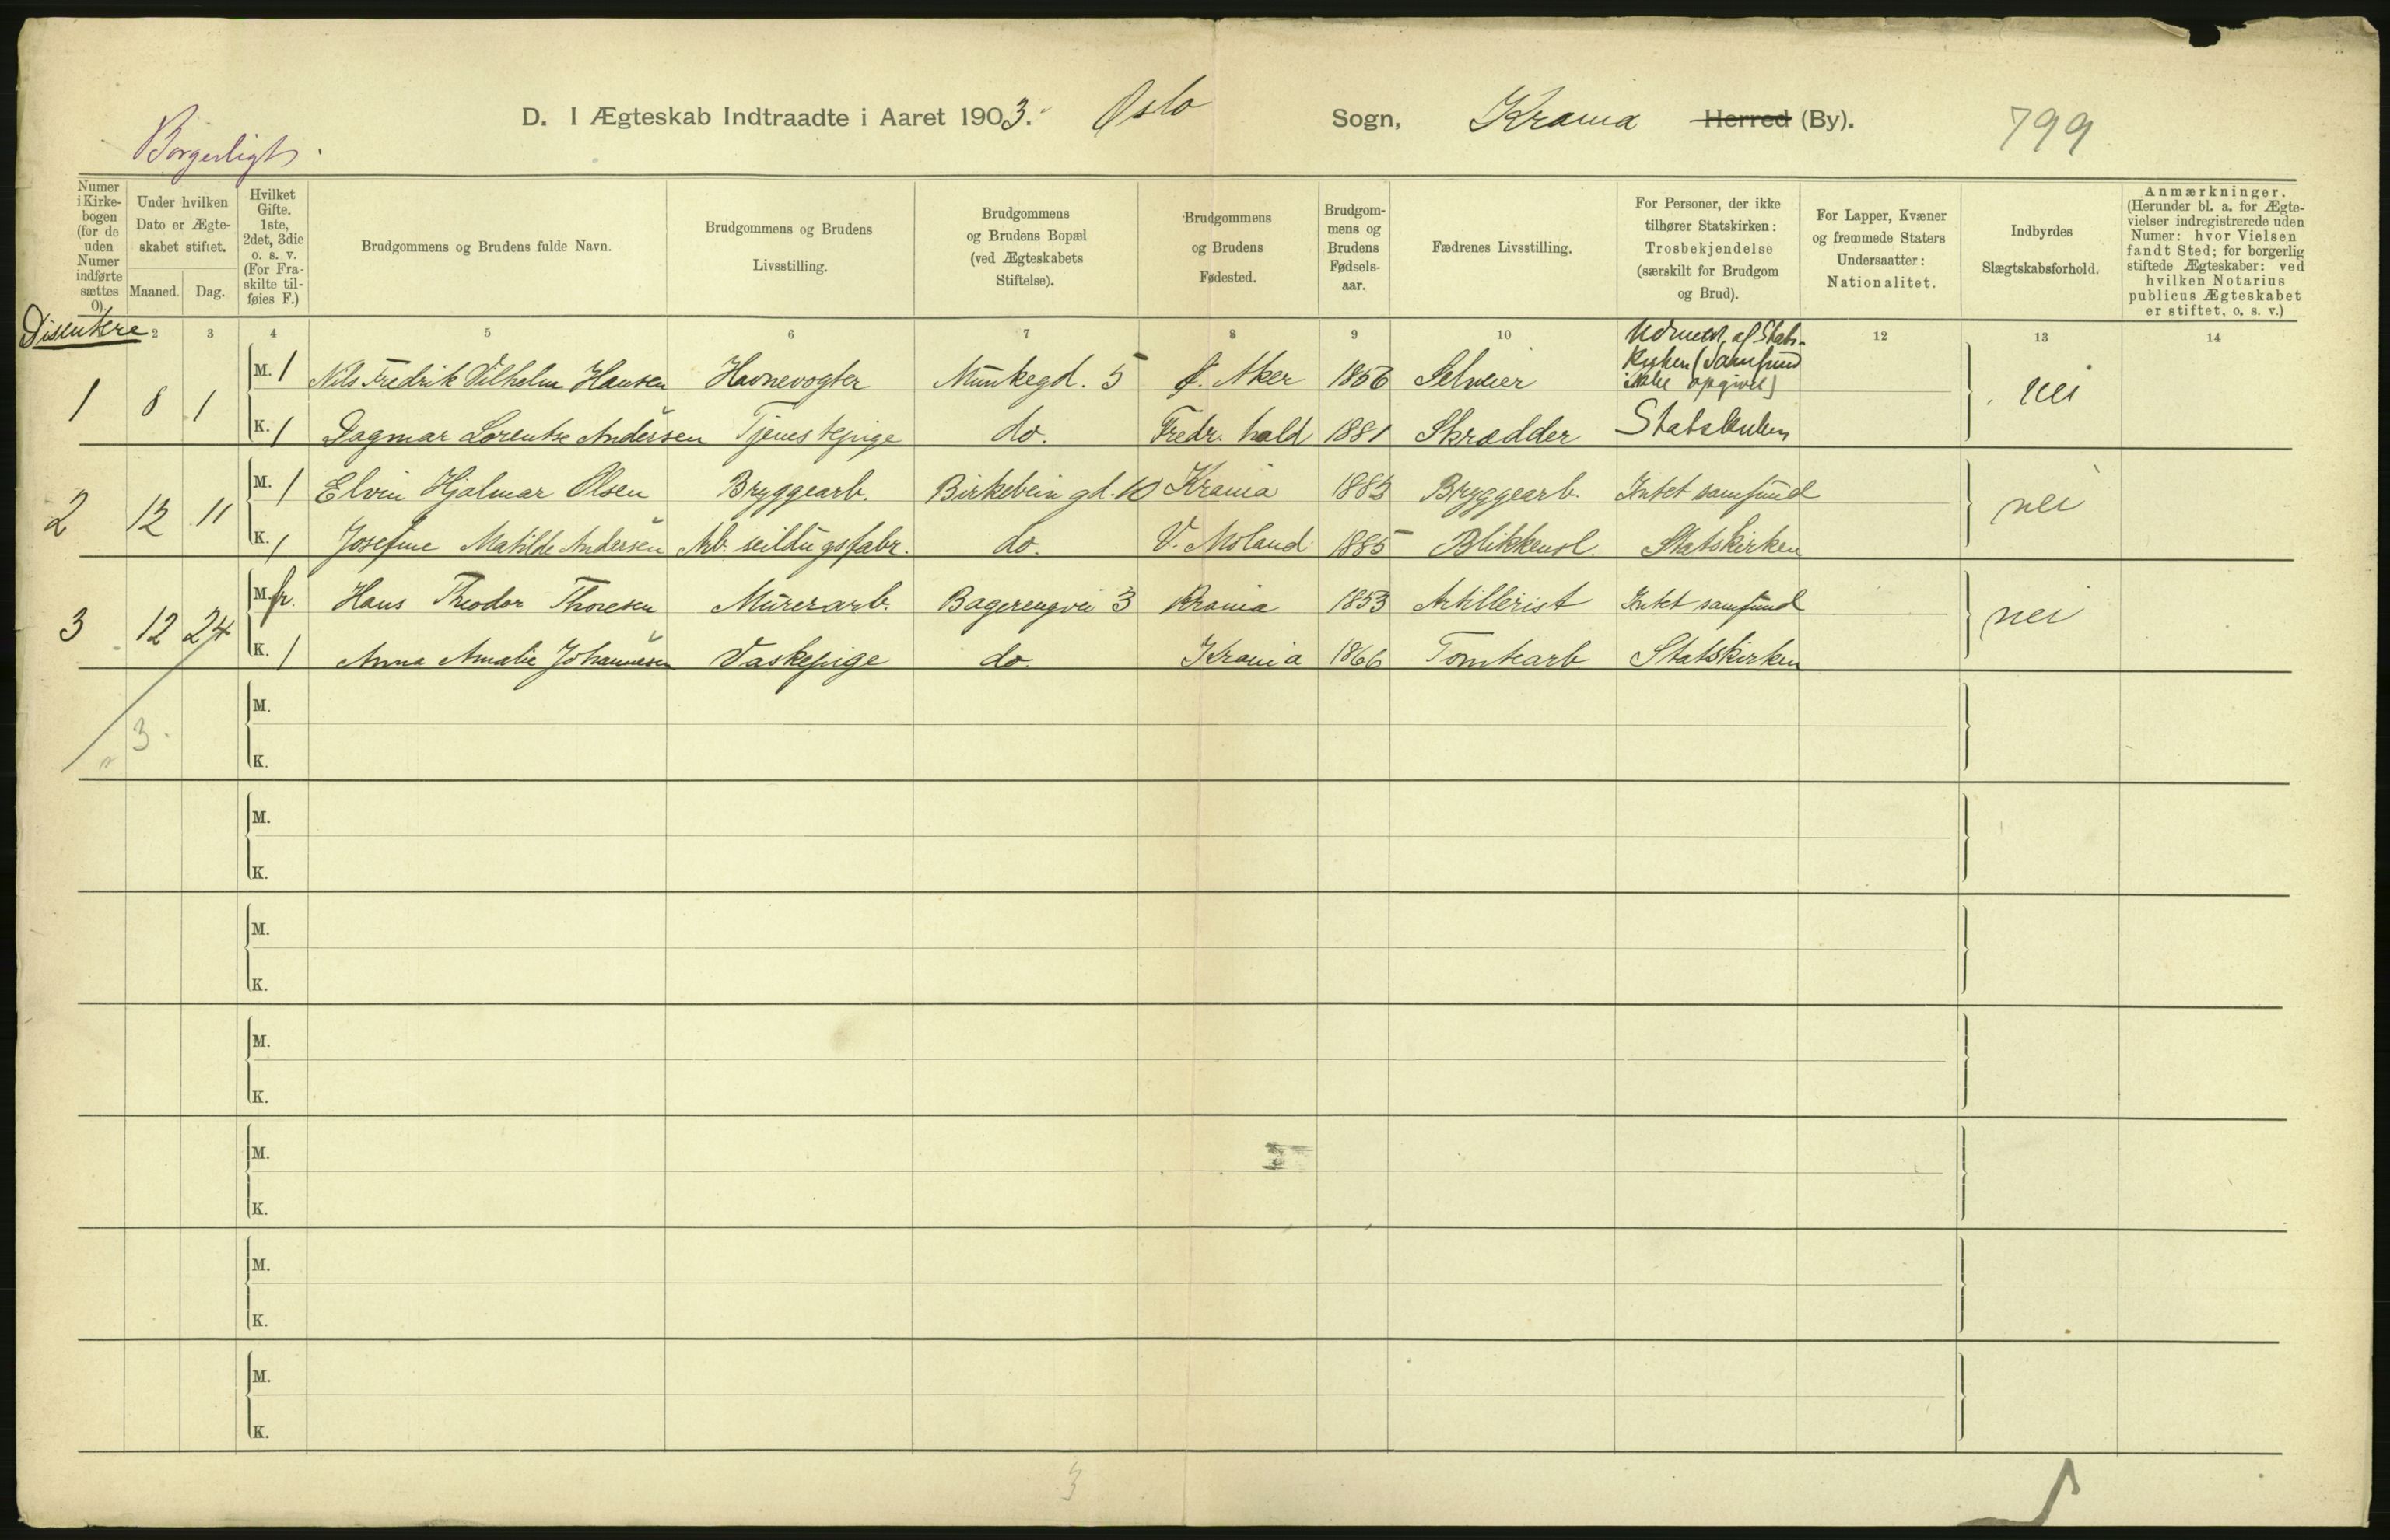 D. I Ægteskab Indtraadte i Aaret 1903. Oslo Sogn, Krania Herred (By). 799
Borgerligt
Numer i Kirkebogen (for de uden Numer indførte sættes 0).
Under hvilken Dato er Ægteskabet stiftet. Maaned. Dag.
Hvilket Gifte. 1ste, 2det, 3die o. s. v. (For Fraskilte tilføies F.)
Brudgommens og Brudens fulde Navn.
Brudgommens og Brudens Livsstilling.
Brudgommens og Brudens Bopæl (ved Ægteskabets Stiftelse).
Brudgommens og Brudens Fødested.
Brudgommens og Brudens Fødselsaar.
Fædrenes Livsstilling.
For Personer, der ikke tilhører Statskirken: Trosbekjendelse (særskilt for Brudgom og Brud).
For Lapper, Kvæner og fremmede Staters Undersaatter: Nationalitet.
Indbyrdes Slægtskabsforhold.
Anmærkninger. (Herunder bl. a. for Ægtevielser indregistrerede uden Numer: hvor Vielsen fandt Sted; for borgerlig stiftede Ægteskaber: ved hvilken Notarius publicus Ægteskabet er stiftet, o. s. v.)
Disentere 2 3 4 5 6 7 8 9 10 12 13 14
1 8 1 M. 1 Nils Fredrik Vilhelm Hansen Havnevogter Munkegd. 5 Ø. Aker 1856 Selveier Udmeldt af Statskirken (Samfund ikke opgivet) nei
K. 1 Dagmar Lorentze Andersen Tjenestepige do. Fredr.hald 1881 Skrædder Statskirken
2 12 11 M. 1 Elvin Hjalmar Olsen Bryggearb. Birkebein gd. 10 Krania 1883 Bryggearb. Intet samfund nei
K. 1 Josefine Matilde Andersen Arb. seildugsfabr. do. V. Moland 1885 Blikkensl. Statskirken
3 12 24 M. fr. Hans Theodor Thoresen Murerarb. Bagerengvei 3 Krania 1853 Artillerist Intet samfund nei
K. 1 Anna Amalie Johannesen Vaskepige do. Krania 1866 Tomtearb. Statskirken
M.
3.
K.
M.
K.
M.
K.
M.
K.
M.
K.
M.
K.
M.
K.
3